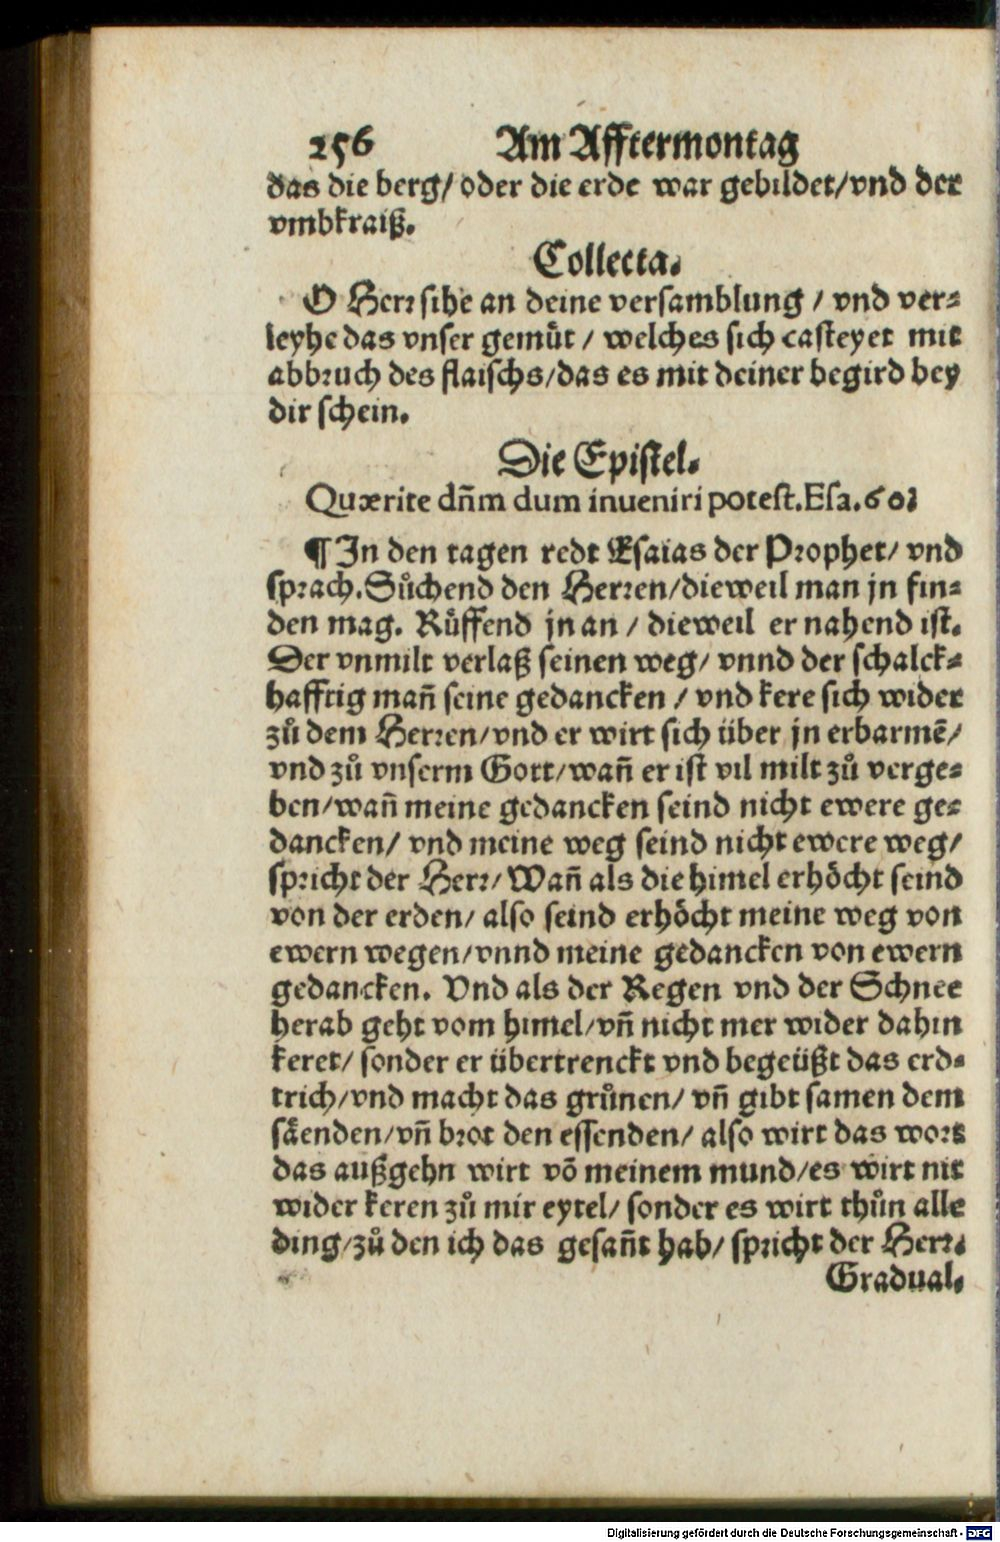 256 Am Afftermontag
das die berg/ oder die erde war gebildet/vnd der
vmbkraiß.
Collecta.
O Herr sihe an deine versamblung / vnd ver-
leyhe das vnser gemüt / welches sich casteyet mit
abbruch des flaischs/das es mit deiner begird bey
dir schein.
Die Epistel.
Quærite dñm dum inueniri potest.Esa.60.
¶ In den tagen redt Esaias der Prophet/ vnd
sprach.Sůchend den Herren/dieweil man jn fin-
den mag. Růffend jn an / dieweil er nahend ist.
Der vnmilt verlaß seinen weg/ vnnd der schalck-
hafftig mañ seine gedancken / vnd kere sich wider
zů dem Herren/vnd er wirt sich über jn erbarmẽ/
vnd zů vnserm Gott/wañ er ist vil milt zů verge-
ben/wañ meine gedancken seind nicht ewere ge-
dancken/ vnd meine weg seind nicht ewere weg/
spricht der Herr/ Wañ als die himel erhöcht seind
von der erden/ also seind erhöcht meine weg von
ewern wegen/vnnd meine gedancken von ewern
gedancken. Vnd als der Regen vnd der Schnee
herab geht vom himel/vñ nicht mer wider dahin
keret/ sonder er übertrenckt vnd begeüßt das erd-
trich/vnd macht das grůnen/ vñ gibt samen dem
säenden/vñ brot den essenden/ also wirt das wort
das außgehn wirt võ meinem mund/es wirt nit
wider keren zů mir eytel/ sonder es wirt thůn alle
ding/zů den ich das gesañt hab/ spricht der Herr.
Gradual.
Digitalisierung gefördert durch die Deutsche Forschungsgemeinschaft - DFG